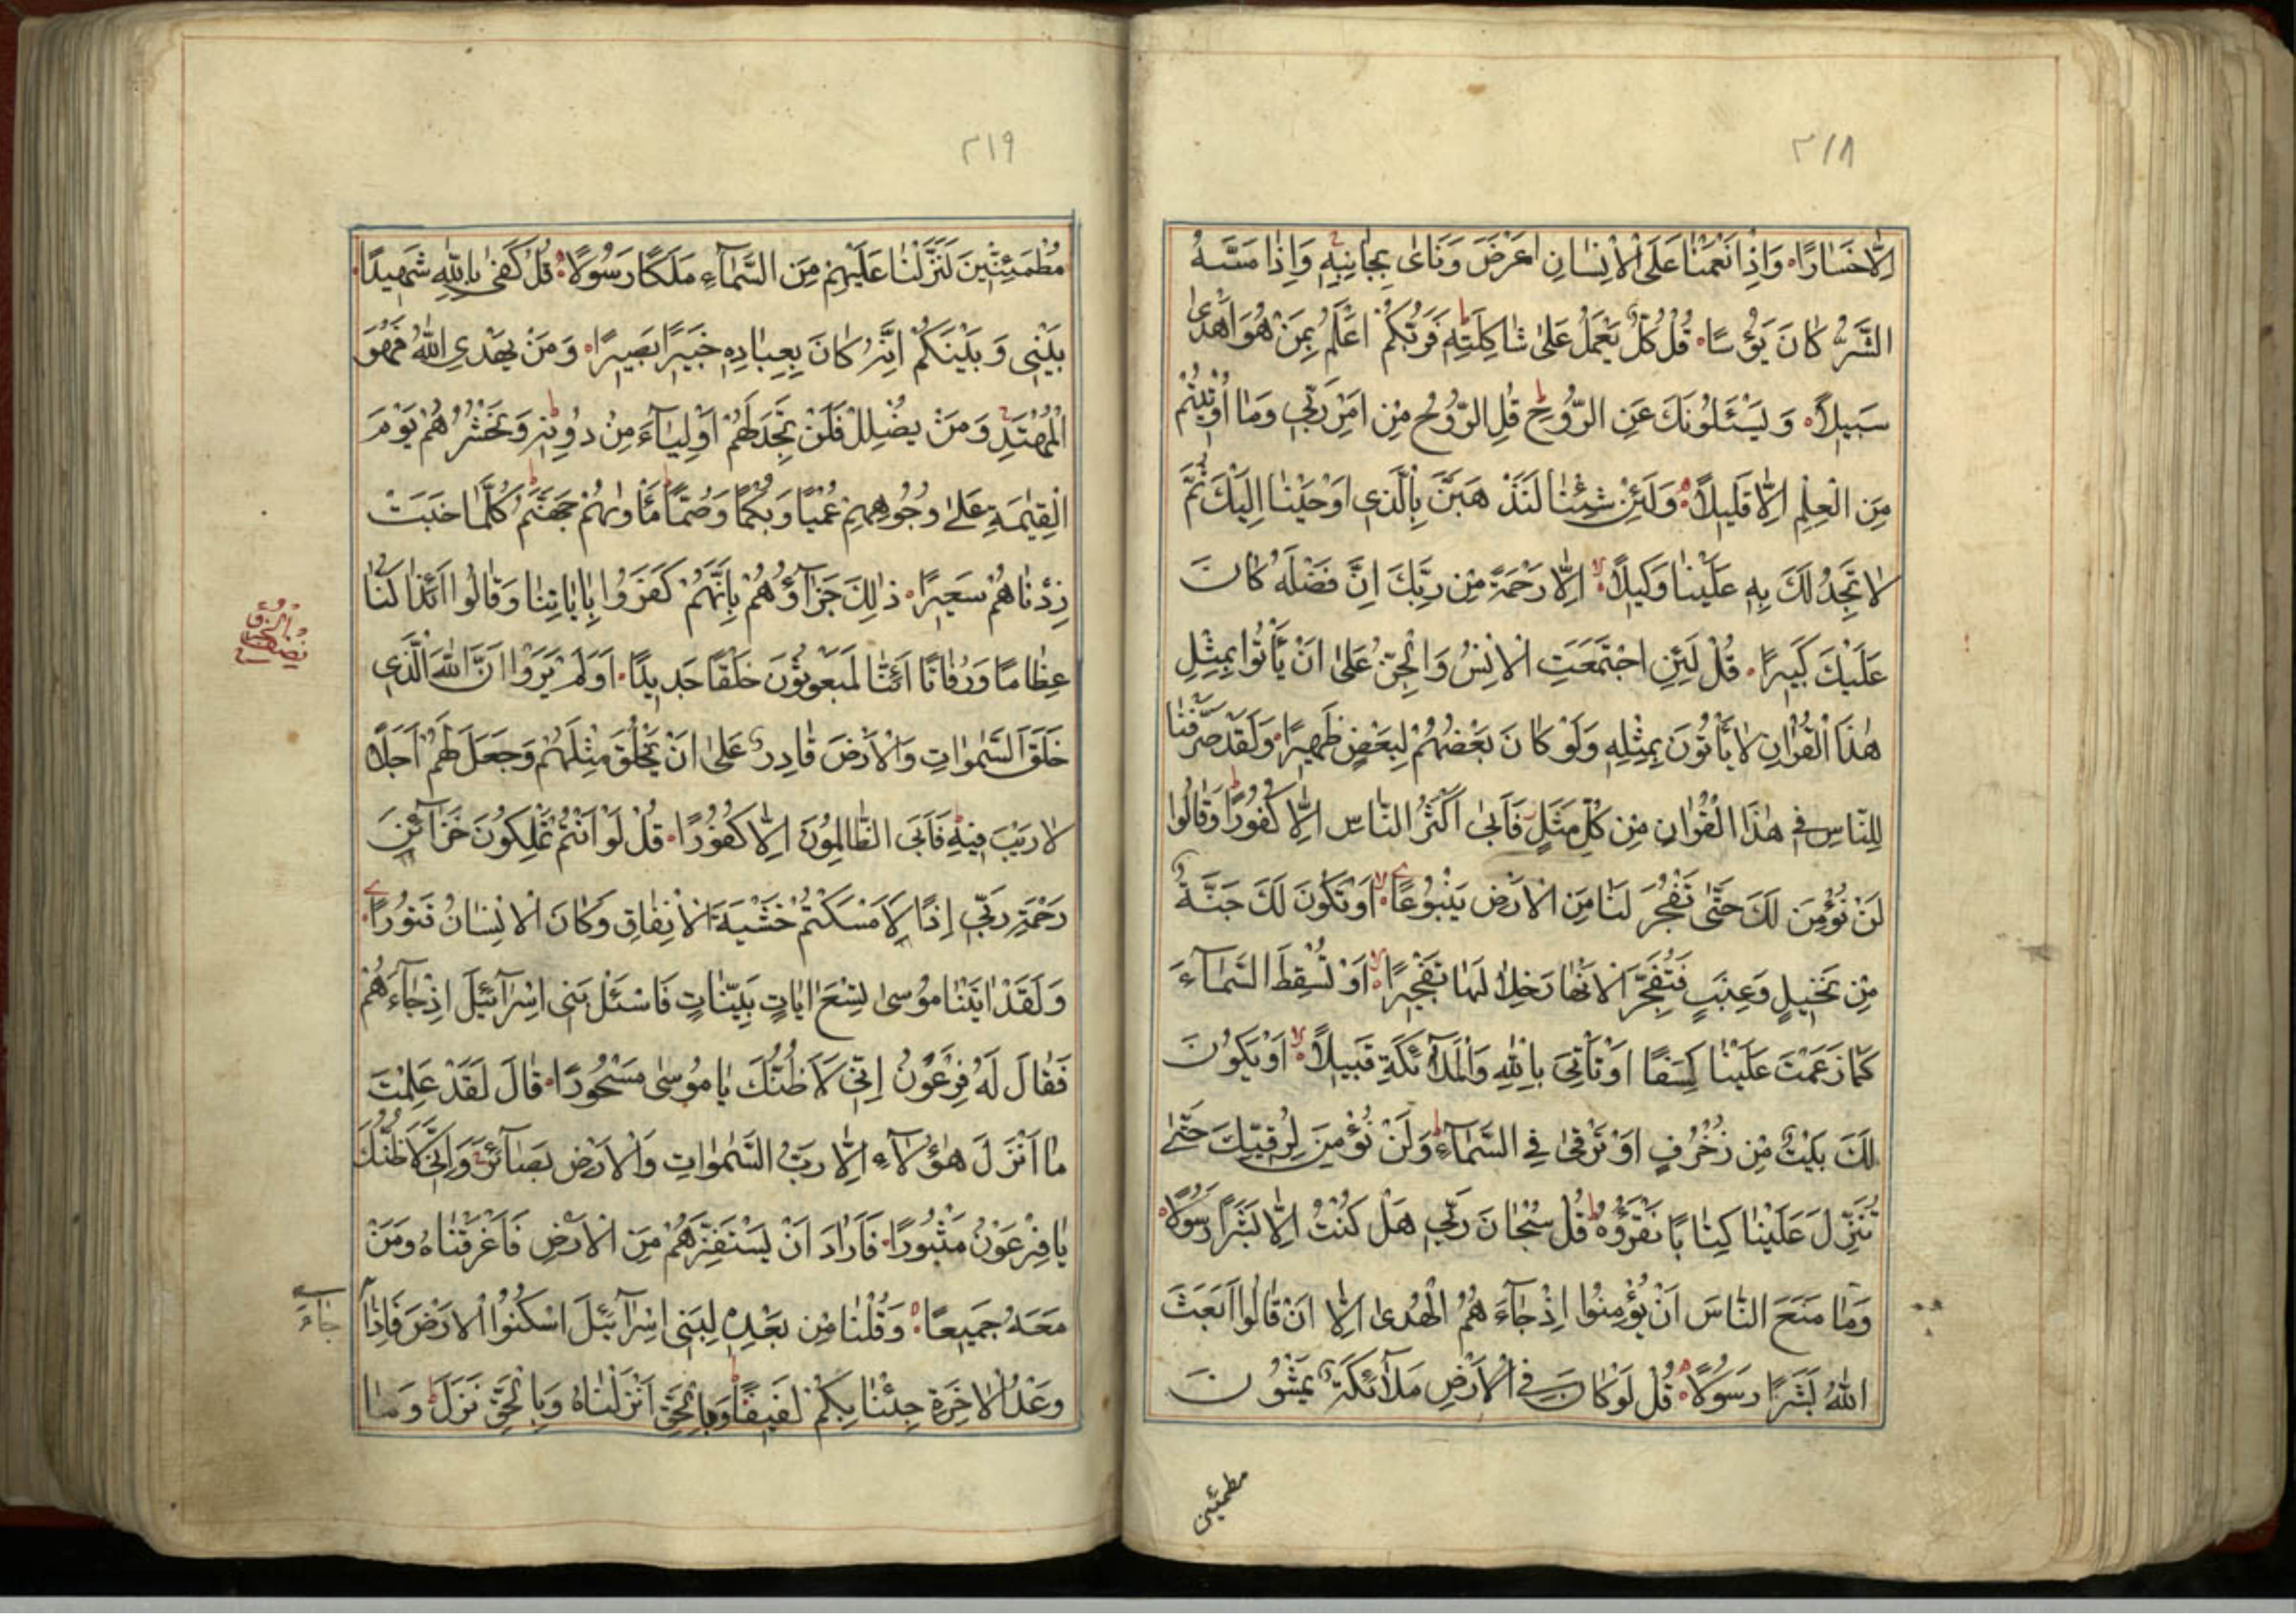 ٣١٨
اِلَّا خَسَارًا وَاِذَا اَنْعَمْنَا عَلَى الْاِنْسَانِ اَعْرَضَ وَنَاٰى بِجَانِبِهٖ وَاِذَا مَسَّهُ
الشَّرُّ كَانَ يَؤُسًا قُلْ كُلٌّ يَعْمَلُ عَلٰى شَاكِلَتِهٖ فَرَبُّكُمْ اَعْلَمُ بِمَنْ هُوَ اَهْدٰى
سَبِيلًا وَيَسْئَلُونَكَ عَنِ الرُّوحِ قُلِ الرُّوحُ مِنْ اَمْرِ رَبِّي وَمَا اُوتِيتُمْ
مِنَ الْعِلْمِ اِلَّا قَلِيلًا وَلَئِنْ شِئْنَا لَنَذْهَبَنَّ بِالَّذِي اَوْحَيْنَا اِلَيْكَ ثُمَّ
لَا تَجِدُ لَكَ بِهٖ عَلَيْنَا وَكِيلًا اِلَّا رَحْمَةً مِنْ رَبِّكَ اِنَّ فَضْلَهُ كَانَ
عَلَيْكَ كَبِيرًا قُلْ لَئِنِ اجْتَمَعَتِ الْاِنْسُ وَالْجِنُّ عَلٰى اَنْ يَأْتُوا بِمِثْلِ
هٰذَا الْقُرْاٰنِ لَا يَأْتُونَ بِمِثْلِهٖ وَلَوْ كَانَ بَعْضُهُمْ لِبَعْضٍ ظَهِيرًا وَلَقَدْ صَرَّفْنَا
لِلنَّاسِ فِي هٰذَا الْقُرْاٰنِ مِنْ كُلِّ مَثَلٍ فَاَبٰى اَكْثَرُ النَّاسِ اِلَّا كُفُورًا وَقَالُوا
لَنْ نُؤْمِنَ لَكَ حَتّٰى تَفْجُرَ لَنَا مِنَ الْاَرْضِ يَنْبُوعًا اَوْ تَكُونَ لَكَ جَنَّةٌ
مِنْ نَخِيلٍ وَعِنَبٍ فَتُفَجِّرَ الْاَنْهَارَ خِلَالَهَا تَفْجِيرًا اَوْ تُسْقِطَ السَّمَآءَ
كَمَا زَعَمْتَ عَلَيْنَا كِسَفًا اَوْ تَأْتِيَ بِاللّٰهِ وَالْمَلٰٓائِكَةِ قَبِيلًا اَوْ يَكُونَ
لَكَ بَيْتٌ مِنْ زُخْرُفٍ اَوْ تَرْقٰى فِي السَّمَآءِ وَلَنْ نُؤْمِنَ لِرُقِيِّكَ حَتّٰى
تُنَزِّلَ عَلَيْنَا كِتَابًا نَقْرَؤُهُ قُلْ سُبْحَانَ رَبِّي هَلْ كُنْتُ اِلَّا بَشَرًا رَسُولًا
وَمَا مَنَعَ النَّاسَ اَنْ يُؤْمِنُوا اِذْ جَآءَهُمُ الْهُدٰى اِلَّا اَنْ قَالُوا اَبَعَثَ
اللّٰهُ بَشَرًا رَسُولًا قُلْ لَوْ كَانَ فِي الْاَرْضِ مَلٰٓائِكَةٌ يَمْشُونَ
مطمئنين
٣١٩
مُطْمَئِنِّينَ لَنَزَّلْنَا عَلَيْهِمْ مِنَ السَّمَآءِ مَلَكًا رَسُولًا قُلْ كَفٰى بِاللّٰهِ شَهِيدًا
بَيْنِي وَبَيْنَكُمْ اِنَّهُ كَانَ بِعِبَادِهٖ خَبِيرًا بَصِيرًا وَمَنْ يَهْدِي اللّٰهُ فَهُوَ
الْمُهْتَدِ وَمَنْ يُضْلِلْ فَلَنْ تَجِدَ لَهُمْ اَوْلِيَآءَ مِنْ دُونِهٖ وَنَحْشُرُهُمْ يَوْمَ
الْقِيٰمَةِ عَلٰى وُجُوهِهِمْ عُمْيًا وَبُكْمًا وَصُمًّا مَأْوٰيهُمْ جَهَنَّمُ كُلَّمَا خَبَتْ
زِدْنَاهُمْ سَعِيرًا ذٰلِكَ جَزَآؤُهُمْ بِاَنَّهُمْ كَفَرُوا بِاٰيَاتِنَا وَقَالُوا اَئِذَا كُنَّا
عِظَامًا وَرُفَاتًا اَئِنَّا لَمَبْعُوثُونَ خَلْقًا جَدِيدًا اَوَلَمْ يَرَوْا اَنَّ اللّٰهَ الَّذِي
خَلَقَ السَّمٰوَاتِ وَالْاَرْضَ قَادِرٌ عَلٰى اَنْ يَخْلُقَ مِثْلَهُمْ وَجَعَلَ لَهُمْ اَجَلًا
لَا رَيْبَ فِيهِ فَاَبَى الظَّالِمُونَ اِلَّا كُفُورًا قُلْ لَوْ اَنْتُمْ تَمْلِكُونَ خَزَآئِنَ
رَحْمَةِ رَبِّي اِذًا لَاَمْسَكْتُمْ خَشْيَةَ الْاِنْفَاقِ وَكَانَ الْاِنْسَانُ قَتُورًا
وَلَقَدْ اٰتَيْنَا مُوسٰى تِسْعَ اٰيَاتٍ بَيِّنَاتٍ فَاسْئَلْ بَنِي اِسْرَآئِيلَ اِذْ جَآءَهُمْ
فَقَالَ لَهُ فِرْعَوْنُ اِنِّي لَاَظُنُّكَ يَا مُوسٰى مَسْحُورًا قَالَ لَقَدْ عَلِمْتَ
مَا اَنْزَلَ هٰؤُلَآءِ اِلَّا رَبُّ السَّمٰوَاتِ وَالْاَرْضِ بَصَآئِرَ وَاِنِّي لَاَظُنُّكَ
يَا فِرْعَوْنُ مَثْبُورًا فَاَرَادَ اَنْ يَسْتَفِزَّهُمْ مِنَ الْاَرْضِ فَاَغْرَقْنَاهُ وَمَنْ
مَعَهُ جَمِيعًا وَقُلْنَا مِنْ بَعْدِهٖ لِبَنِي اِسْرَآئِيلَ اسْكُنُوا الْاَرْضَ فَاِذَا جَآءَ
وَعْدُ الْاٰخِرَةِ جِئْنَا بِكُمْ لَفِيفًا وَبِالْحَقِّ اَنْزَلْنَاهُ وَبِالْحَقِّ نَزَلَ وَمَا